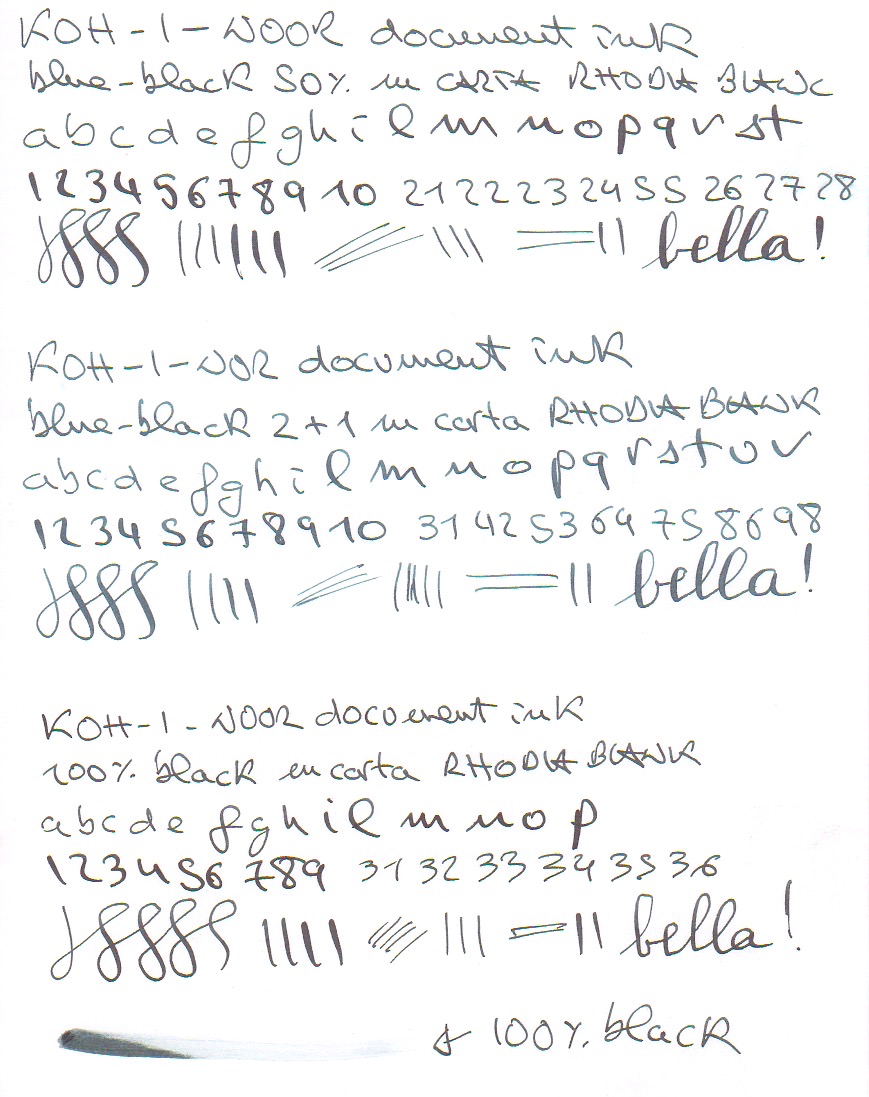 KOH-I-NOOR document ink
blue-black 50% su CARTA RHODIA BLANC
a b c d e f g h i l m n o p q r s t
1 2 3 4 5 6 7 8 9 10 21 22 23 24 55 26 27 28
bella!
KOH-I-NOR document ink
blue-black 2+1 su carta RHODIA BLANK
a b c d e f g h i l m n o p q r s t u v
1 2 3 4 5 6 7 8 9 10 31 42 53 64 75 86 98
bella!
KOH-I-NOOR document ink
100% black su carta RHODIA BLANK
a b c d e f g h i l m n o p
1 2 3 4 5 6 7 8 9 31 32 33 34 35 36
bella!
100% black